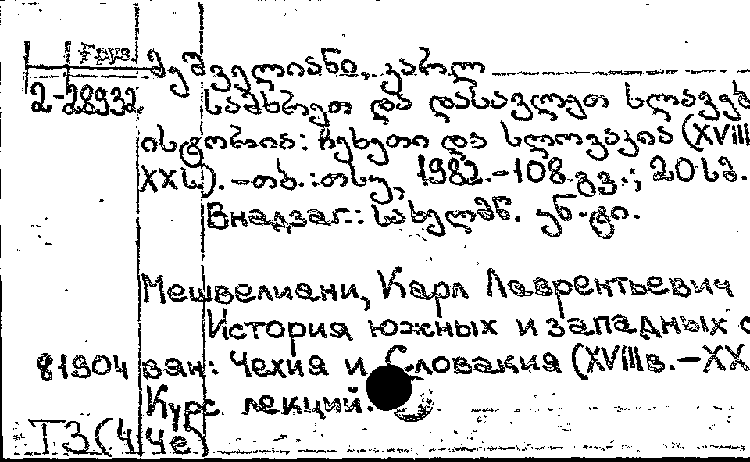 Груз.
მეშველიანი, კარლ
2-28932 სამხრეთ და დასავლეთ სლავებ
ისტორია: ჩეხეთი და სლოვაკია (XVIII
XX ს.). -თბ.:თსუ, 1982.-108 გვ.; 20 სმ.
Внадзаг.: სახელმწ. უნ-ტი.
Мешвелиани, Карл Лаврентьевич
История южных и западных с
81904 вян: Чехия и Словакия (XVIIIв.-XX
Курс лекций.
Т3(4Че)